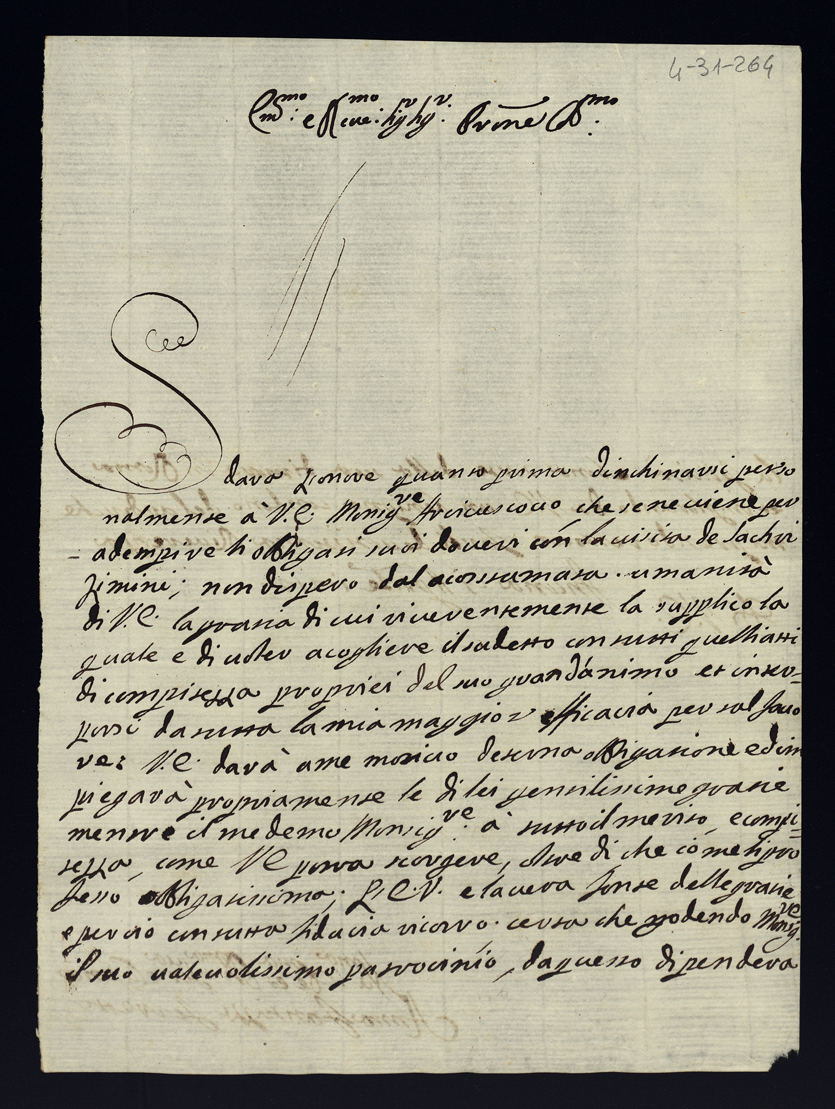 4-31-264
Em.mo e R.mo Sig.r Sig.r Prone Col.mo
Se
darà l'onore quanto prima d'inchinarsi perso
nalmente à V.E. Monsig.re Arcivescovo che se ne viene per
adempire li obligati suoi doveri con la visita de sachri
limini; non dispero dal acostumata umanità
di V.E. la grazia di cui riverentemente la supplico la
quale e di voler acogliere il sudetto con tutti quelli atti
di compitezza proprici del suo grand'animo et inter-
porsi da tutta la mia maggior efficacia per tal favo
re: V.E. darà a me motivo deterna obligatione ed im
piegarà propriamente le di lei gentilissime grazie
mentre il medemo Monsig.re à tutto il merito, e compi-
tezza, come VE potrà scorgere, oltre di che come li pro
fesso obligatissima; L'E.V. e la vera fonte delle grazie
e perciò con tutta fiducia ricorro certa che godendo Monsig.re
il suo valevolissimo patrocinio, da questo dipenderà